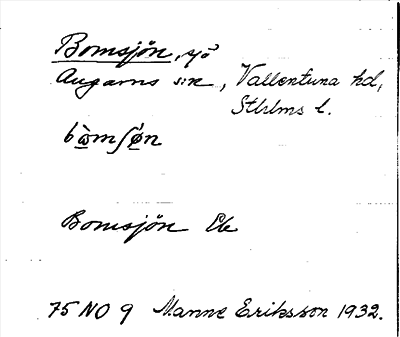 Bomsjön, sjö
Angarns sn, Vallentuna hd,
Sthlms l.
bὼmʃø̀n
Bomsjön Ek
75 NO 9 Manne Eriksson 1932.